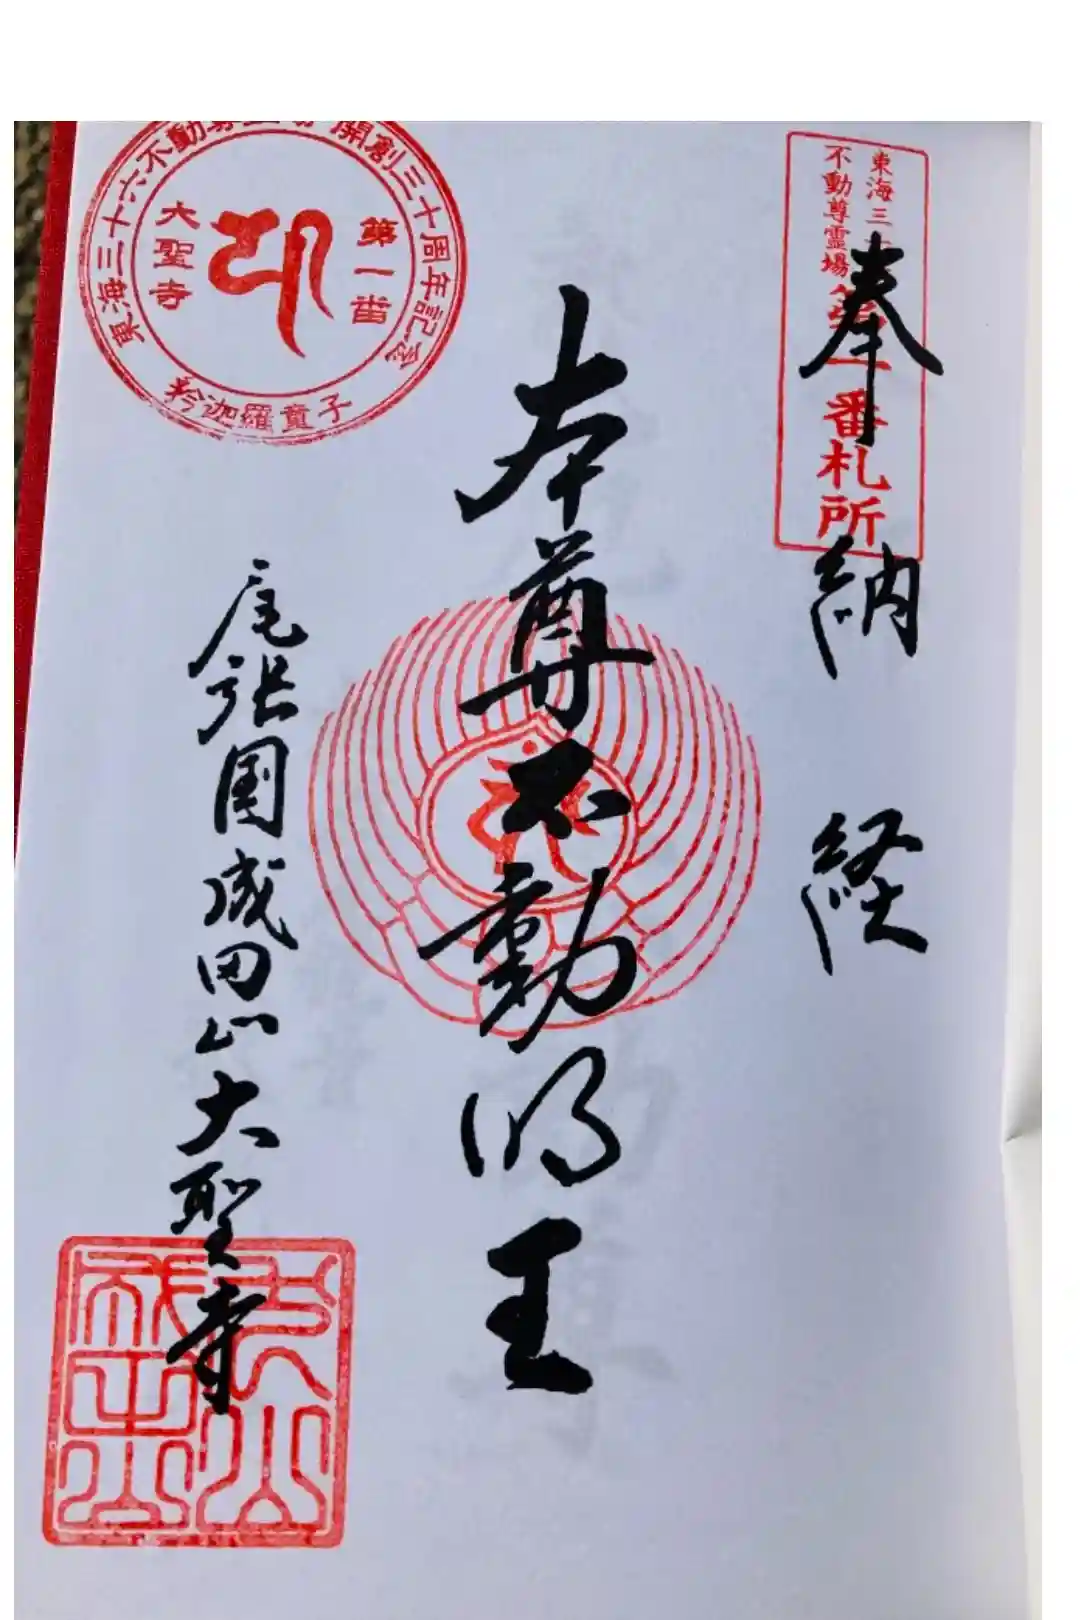 奉納経
東海三
不動尊霊場
番札所
本尊不動明王
尾張国成田山大聖寺
東海三十六不動尊 開創三十周年記念
第一番
大聖寺
矜迦羅童子